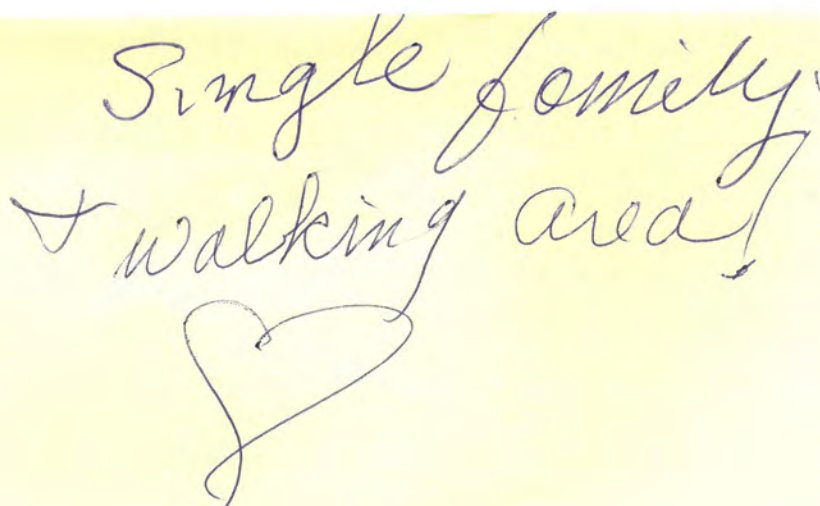 Single family
& walking area!